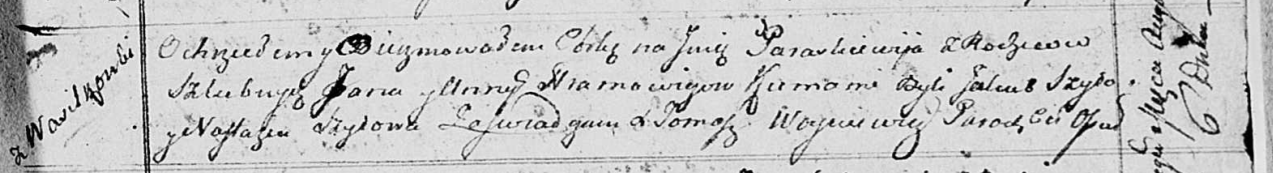 z Wasilkowki
Ochrzciłem y Bierzmowałem Córkę na Jmię Paraskiewija z Rodzicow
Szlubnych Jana y Anny Kumami byli Jakub Szyło
y Nastazya Szyłowa Zaświadczam X Tomasz Woyniewicz Paroch
6 Dnia